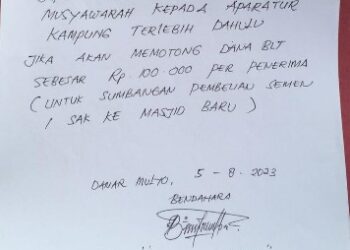 MUSYAWARAH KEPADA APARATUR
KAMPUNG TERLEBIH DAHULU
JIKA AKAN MEMOTONG DANA BLT
SEBESAR Rp. 100.000 PER PENERIMA
( UNTUK SUMBANGAN PEMBELIAN SEMEN
1 SAK KE MASJID BARU )
DANAR MULYO, 5 - 8 - 2023
BENDAHARA